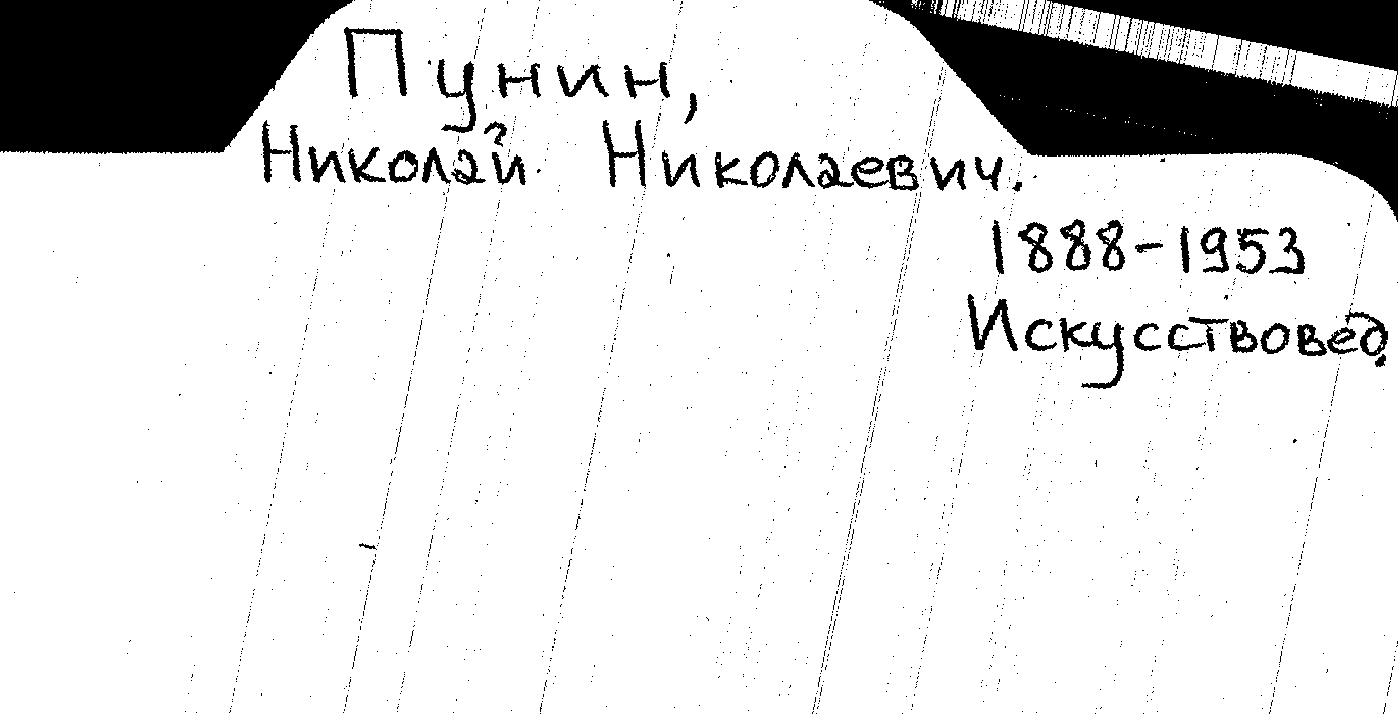 Пунин,
Николай Николаевич.
1888-1953
Искусствовед.